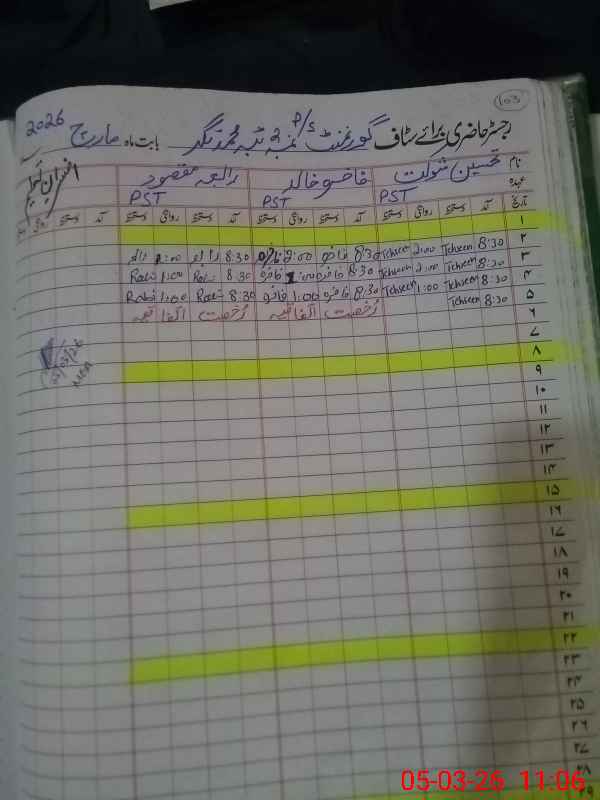 103
رجسٹر حاضری برائے سٹاف گورنمنٹ P/S نمبر 2 ٹبہ محمد نگر بابت ماہ مارچ 2026
نام تحسین شوکت خالد رابعہ مقصود
عہدہ PST PST PST
تاریخ آمد دستخط روانگی دستخط آمد دستخط روانگی دستخط آمد دستخط روانگی دستخط آمد دستخط روانگی
۱
۲ 8:30 Tehseen 2:00 Tehseen 8:30 2:00 8:30
۳ 8:30 Tehseen 2:00 Tehseen 8:30 1:00 8:30 Rabi 1:00 Rabi
۴ 8:30 Tehseen 1:00 Tehseen 8:30 1:00 8:30 Rabi 1:00 Rabi
۵ 8:30 Tehseen رخصت اتفاقیہ رخصت اتفاقیہ
۶
۷
۸
۹
۱۰
۱۱
۱۲
۱۳
۱۴
۱۵
۱۶
۱۷
۱۸
۱۹
۲۰
۲۱
۲۲
۲۳
۲۴
۲۵
۲۶
۲۷
۲۸
۲۹
05-03-26 11:06